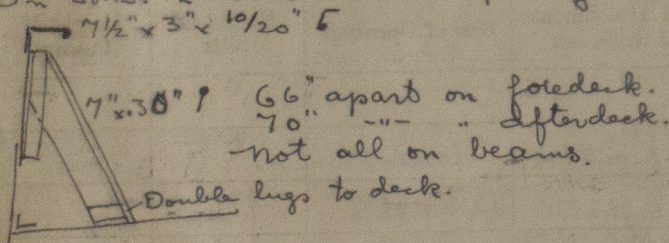 7½" x 3" x 10/20" [
7" x .30" 66" apart on foredeck.
70" -"- " afterdeck.
Not all on beams.
Double lugs to deck.